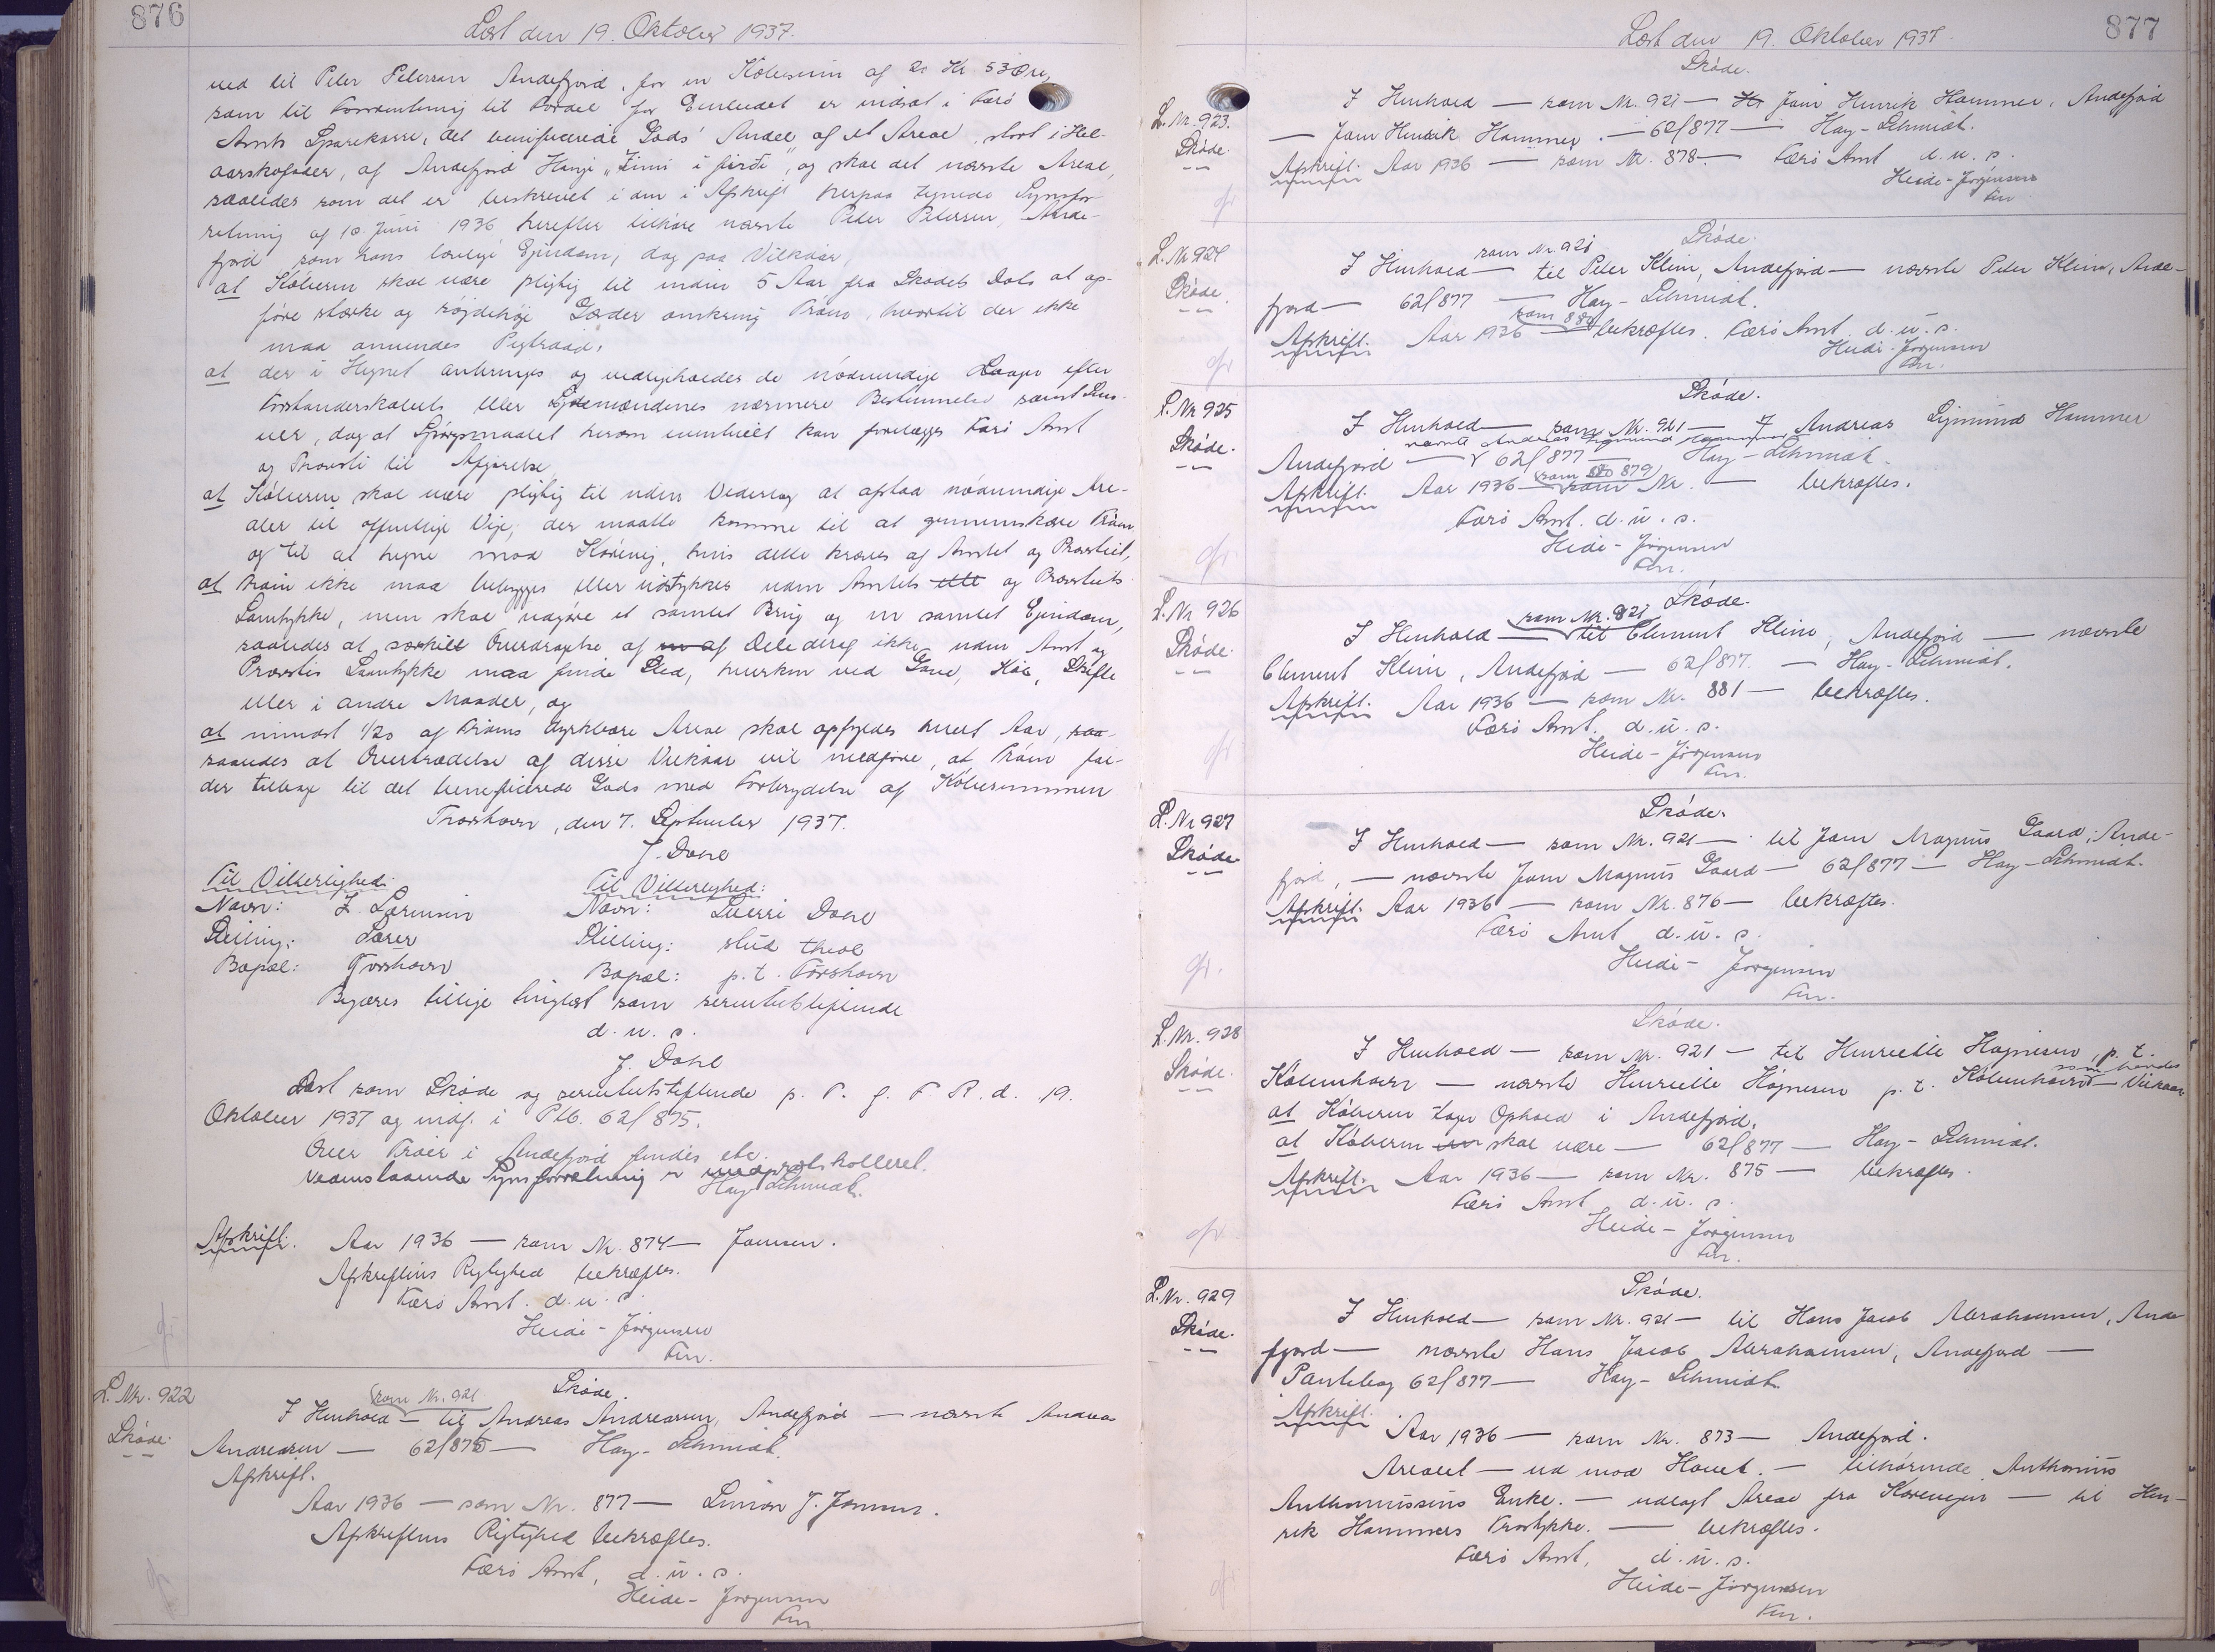 876
Læst den 19. Oktober 1937.
ved til Peter Petersen Andefjord, for en Købesum af 20 Kr 53 Øre,
som til Forrentning til Fordel for Embedet er indsat i Færø
Amts Sparekasse, det beneficerede Gods' Andel af et Areal, stort i Hel-
aarskofoder, af Andefjord Hauge "Finni i firði", og skal det nævnte Areal,
saaledes som det er beskrevet i den i Afskrift herpaa tegnede Synsfor-
retning af 10. Juni 1936 herefter tilhøre nævnte Peter Petersen, Ande-
fjord som hans lovlige Ejendom, dog paa Vilkaar,
at Køberen skal være pligtig til inden 5 Aar fra Skødets Dato at op-
føre stærke og højdehøje Gærder omkring Trøen, hvortil der ikke
maa anvendes Pigtraad,
at der i Hegnet anbringes og vedligeholdes de nødvendige Laager efter
Forstanderskabets eller Synsmændenes nærmere Bestemmelse
, dog at Spørgsmaalet herom eventuelt kan forelægges Færø Amt
og Provsti til Afgørelse,
at Køberen skal være pligtig til uden Vederlag at afstaa nødvendige Are-
aler til offentlige Veje, der maatte komme til at gennemskære Trøen
og til at hegne mod Kørevej, hvis dette kræves af Amtet og Provstiet,
at Trøen ikke maa bebygges eller udstykkes uden Amtets ell og Provstiets
Samtykke, men skal udgøre et samlet Brug og en samlet Ejendom,
saaledes at særskilt Overdragelse af en af Dele deraf ikke uden Amt og
Provstis Samtykke maa finde Sted, hverken ved Gave, Køb, Skifte
eller i andre Maader, og
at mindst 1/20 af Trøens dyrkbare Areal skal opdyrkes hvert Aar, saa-
saaledes at Overtrædelse af disse Vilkaar vil medføre, at Trøen fal-
der tilbage til det beneficerede Gods med Fortrydelse af Købesummen
Thorshavn, den 7. September 1937.
J. Dahl
Til Vitterlighed: Til Vitterlighed:
Navn: Z. Sørensen Navn: Sverri Dahl
Stilling: Lærer Stilling: stud theol
Bopæl: Tórshavn Bopæl: p.t. Tórshavn
Begæres tillige tinglæst som servitutstiftende
d. u. s.
J. Dahl
Læst som Skøde og servitutstiftende p. T. f. F. R. d. 19.
Oktober 1937 og indf. i Ptb. 62/875.
Over Trøer i Andefjord findes etc.
Vedomstaaende Synsforretning er medprotokolleret.
Hay-Schmidt.
Afskrift. Aar 1936 — som Nr. 874 — Joensen.
Afskriftens Rigtighed bekræftes.
Færø Amt. d. u. s.
Heide-Jørgensen
Fm.
L. Nr. 922
Skøde.
Skøde.
som Nr. 921
I Henhold — til Andreas Andreasen, Andefjord — nævnte Andreas
Andreasen — 62/875 — Hay-Schmidt.
Afskrift.
Aar 1936 — som Nr. 877 — Simon J. Joensen.
Afskriftens Rigtighed bekræftes.
Færø Amt, d. u. s.
Heide-Jørgensen
Fm
877
Læst den 19. Oktober 1937.
Skøde.
L. Nr. 923.
Skøde.
I Henhold — som Nr. 921 — Joen Henrik Hammer, Andefjord
— Joen Henrik Hammer. — 62/877 — Hay-Schmidt.
Afskrift. Aar 1936 — som Nr. 878. — Færø Amt d. u. s.
Heide-Jørgensen
Fm
L. Nr 924
Skøde.
Skøde.
som Nr. 921
I Henhold — til Peter Klein, Andefjord — nævnte Peter Klein, Ande-
fjord — 62/877 — Hay-Schmidt.
som 880
Afskrift. Aar 1936 — bekræftes. Færø Amt. d. u. s.
Heide-Jørgensen
Fm.
L. Nr 925
Skøde.
Skøde.
I Henhold — som Nr. 921 — Andreas Sigmund Hammer
nævnte Andreas Sigmund Hammer
Andefjord — 62/877 — Hay-Schmidt
som 879
Afskrift. Aar 1936 — som Nr. — bekræftes.
Færø Amt. d. u. s.
Heide-Jørgensen
Fm.
L. Nr 926
Skøde.
Skøde.
som Nr. 921
I Henhold — til Clement Klein, Andefjord — nævnte
Clement Klein, Andefjord — 62/877. — Hay-Schmidt.
Afskrift. Aar 1936 — som Nr. 881 — bekræftes.
Færø Amt. d. u. s.
Heide-Jørgensen
Fm.
L. Nr 927
Skøde
Skøde.
I Henhold — som Nr. 921 — til Joen Magnus Gaard, Ande-
fjord, — nævnte Joen Magnus Gaard — 62/877 — Hay-Schmidt.
Afskrift. Aar 1936 — som Nr. 876 — bekræftes.
Færø Amt d. u. s.
Heide-Jørgensen
Fm.
L. Nr. 928
Skøde.
Skøde.
I Henhold — som Nr. 921 — til Henriette Højnesen, p. t.
som hendes
København — nævnte Henriette Højnesen p. t. København — Vilkaar
at Køberen tager Ophold i Andefjord.
at Køberen skal være — 62/877 — Hay-Schmidt.
Afskrift. Aar 1936 — som Nr. 875 — bekræftes.
Færø Amt d. u. s.
Heide-Jørgensen
Fm.
L. Nr. 929
Skøde.
Skøde.
I Henhold — som Nr. 921 — til Hans Jacob Abrahamsen, Ande
fjord — nævnte Hans Jacob Abrahamsen, Andefjord —
Pantebog 62/877 — Hay-Schmidt.
Afskrift.
Aar 1936 — som Nr. 873 — Andefjord.
Arealet — ud mod Havet. — tilhørende Anthonius
Anthoniussens Enke. — udlagt Areal fra Kørevejen — til Hen-
rik Hammers Trøstykke. — bekræftes.
Færø Amt, d. u. s.
Heide-Jørgensen
Fm.